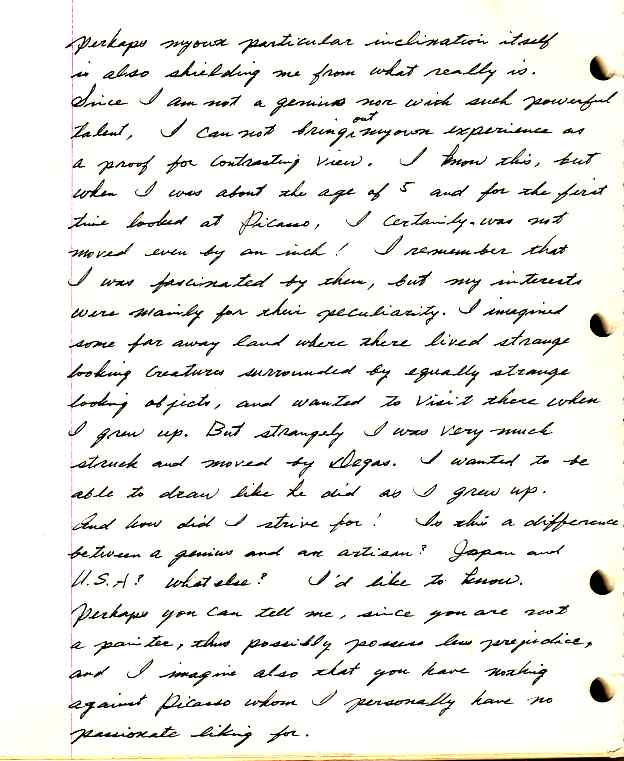 Perhaps myown particular inclination itself
is also shielding me from what really is.
Since I am not a genius nor with such powerful
talent, I can not bring out myown experience as
a proof for contrasting view. I know this, but
when I was about the age of 5 and for the first
time looked at Picasso, I certainly was not
moved even by an inch! I remember that
I was fascinated by them, but my interests
were mainly for their peculiarity. I imagined
some far away land where there lived strange
looking creatures surrounded by equally strange
looking objects, and wanted to visit there when
I grew up. But strangely I was very much
struck and moved by Degas. I wanted to be
able to draw like he did as I grew up.
And how did I strive for! Is this a difference
between a genius and an artisan? Japan and
U.S.A? What else? I'd like to know.
Perhaps you can tell me, since you are not
a painter, thus possibly possess less prejudice,
and I imagine also that you have nothing
against Picasso whom I personally have no
passionate liking for.